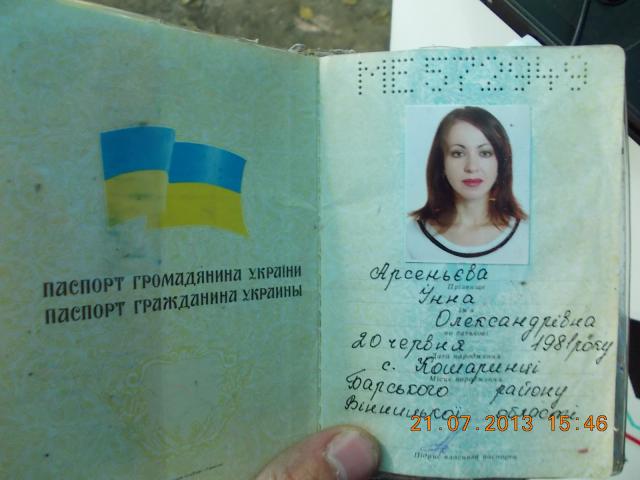 ПАСПОРТ ГРОМАДЯНИНА УКРАЇНИ
ПАСПОРТ ГРАЖДАНИНА УКРАИНЫ
МЕ 573949
Арсеньєва
Прізвище
Інна
Ім'я
Олександрівна
по батькові
20 червня 1981 року
Дата народження
с. Кошаринці
Місце народження
Барського району
Вінницької області
21.07.2013 15:46
Підпис власника паспорта